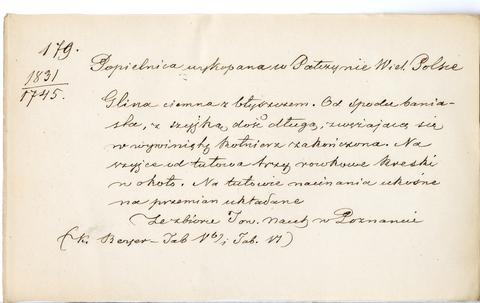 179.
1831
1745.
Popielnica wykopana w Pałczynie Wiel. Polsce
Glina ciemna z błyszczem. Od spodu bania-
sta, z szyjką dość długą, zwężającą się
w wywinięty kołnierz zakończona. Na
szyjce od tułowa trzy rowkowe kreski
w około. Na tułowie nacinania ukośne
na przemian układane
Ze zbioru Tow. nauk. w Poznaniu
(K. Beyer - Tab V b) i Tab. VI)